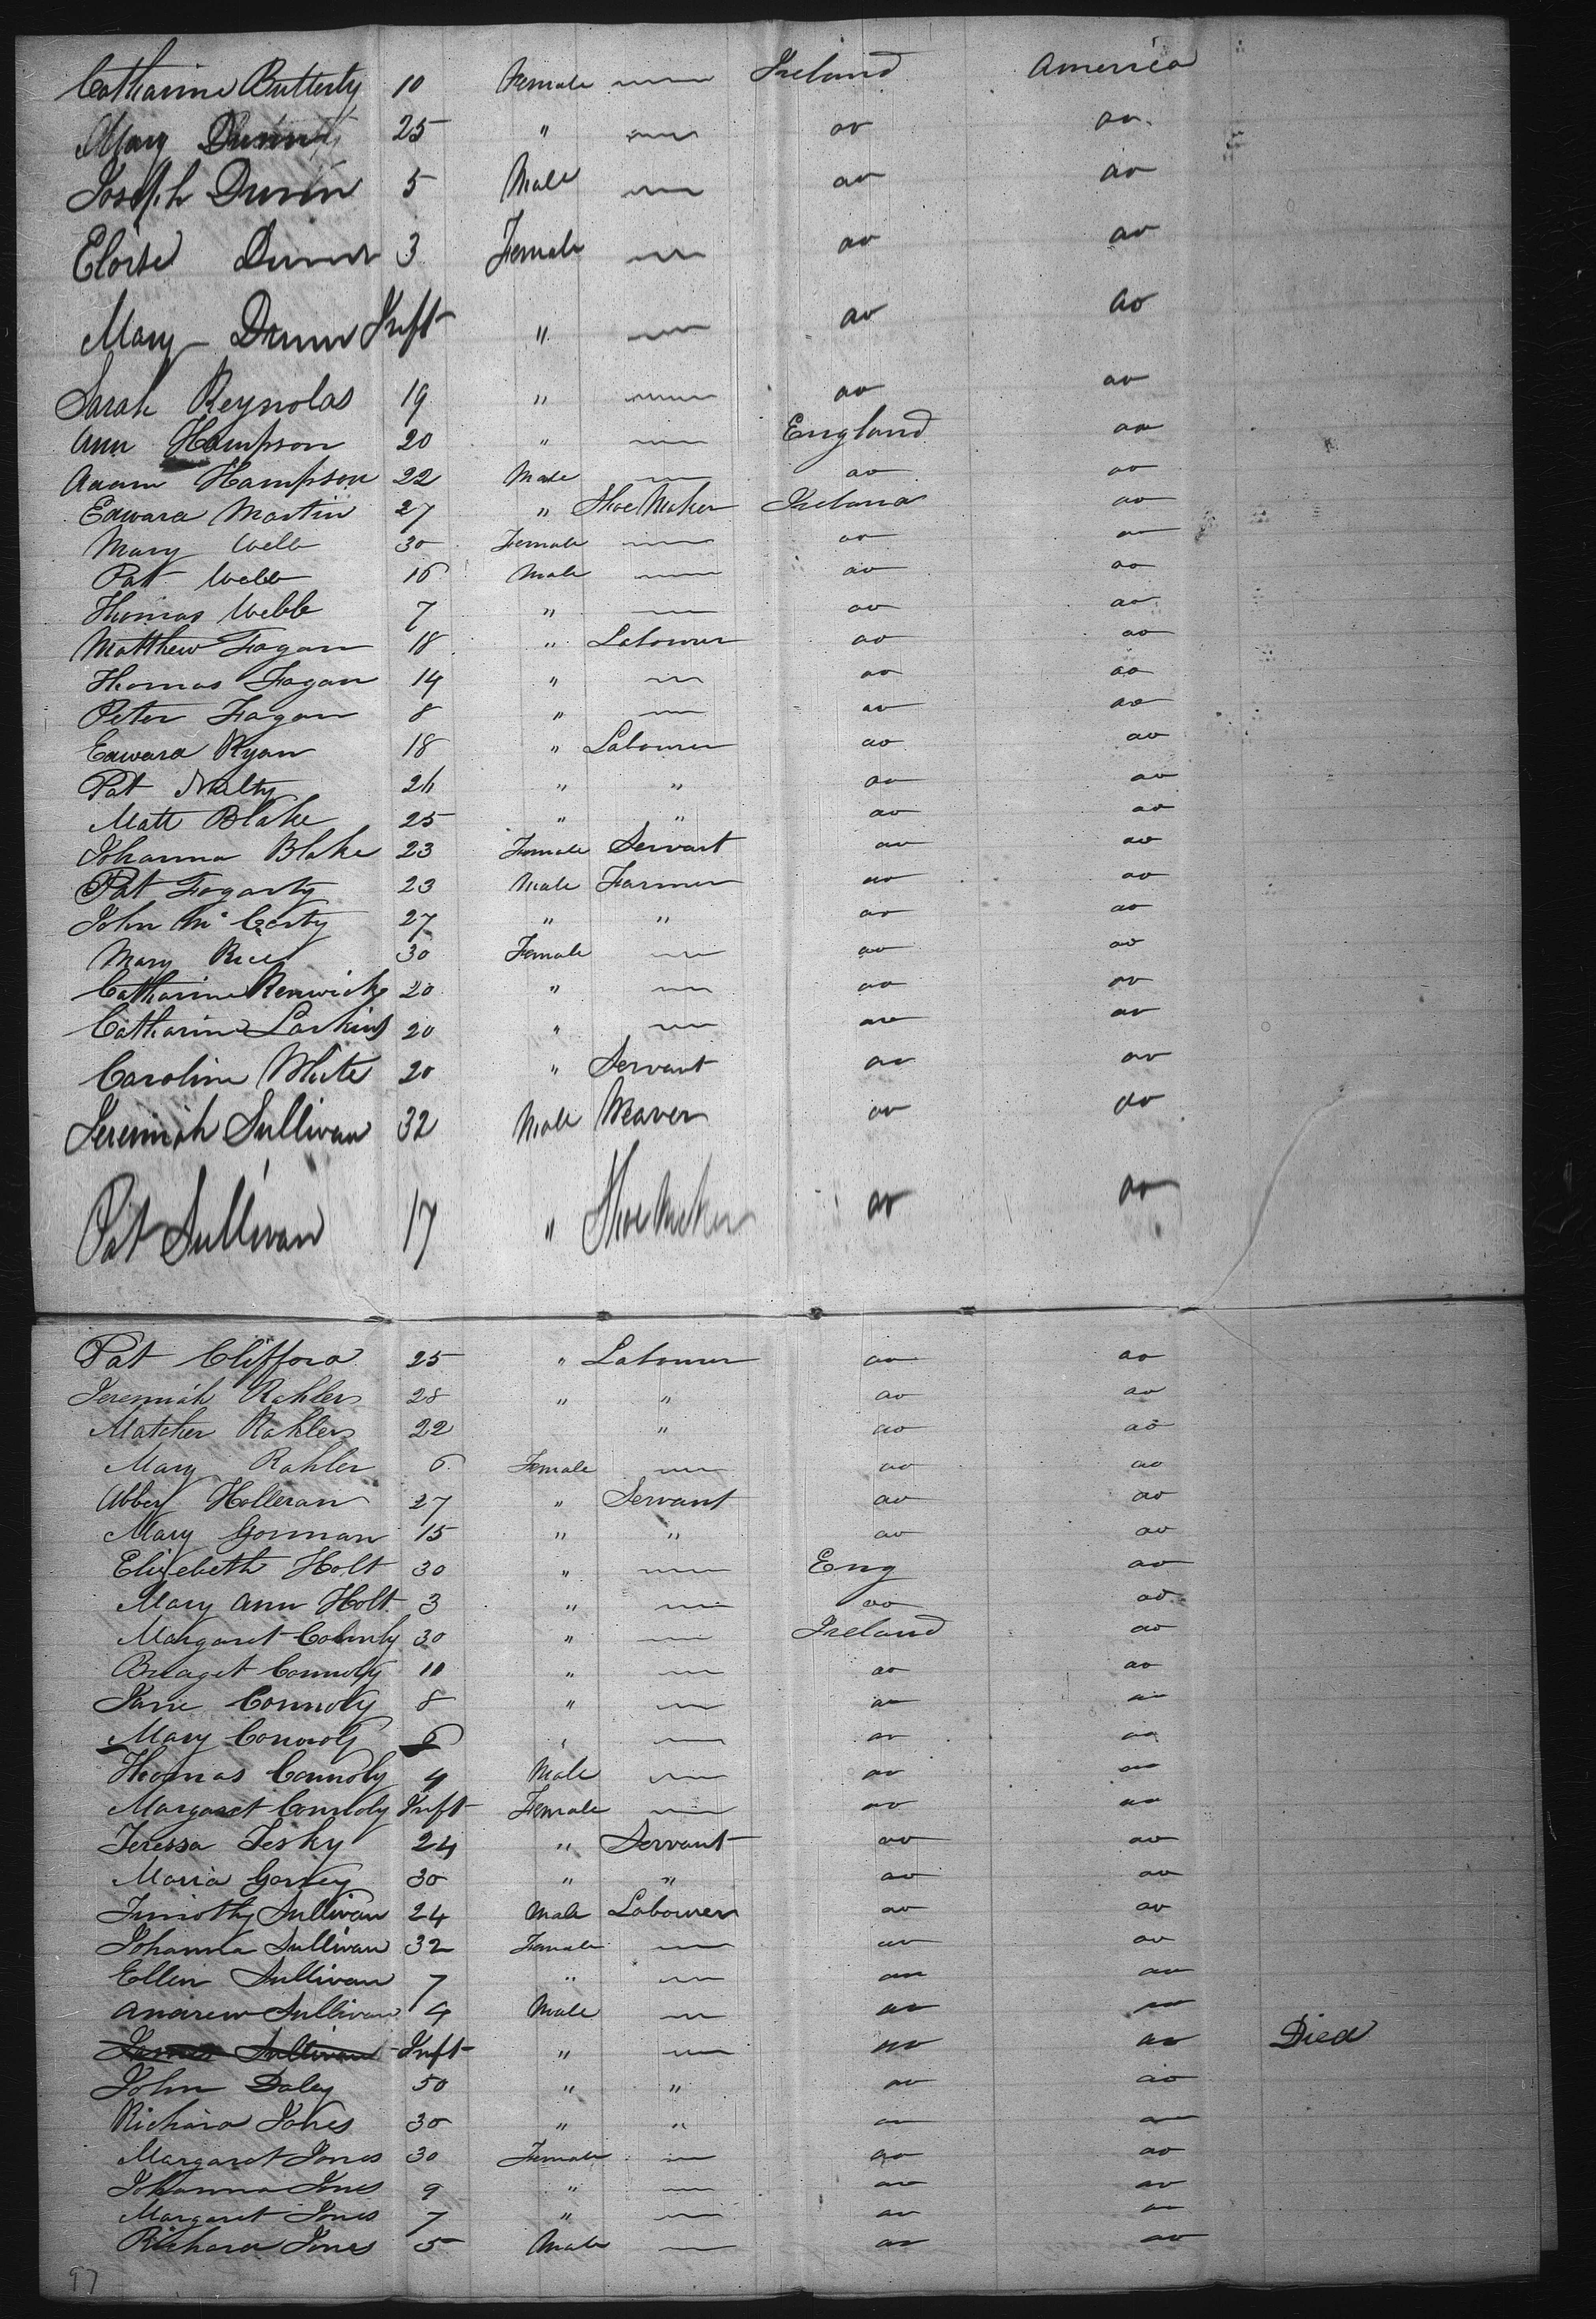 Catharine Butterly 10 Female Ireland America
Mary Dunn 25 " do do
Joseph Dunn 5 Male do do
Eloise Dunn 3 Female do do
Mary Dunn Inft " do do
Sarah Reynolds 19 " do do
Ann Hampson 20 " England do
Adam Hampson 22 Male do do
Edward Martin 27 " Shoe Maker Ireland do
Mary Webb 30 Female do do
Pat Webb 16 Male do do
Thomas Webb 7 " do do
Matthew Fagan 18 " Labourer do do
Thomas Fagan 14 " do do
Peter Fagan 8 " do do
Edward Ryan 18 " Labourer do do
Pat Nalty 26 " " do do
Matt Blake 25 " " do do
Johanna Blake 23 Female Servant do do
Pat Fogarty 23 Male Farmer do do
John McCarty 27 " " do do
Mary Rice 30 Female do do
Catharine Renwick 20 " do do
Catharine Larkins 20 " do do
Caroline White 20 " Servant do do
Jeremiah Sullivan 32 Male Weaver do do
Pat Sullivan 17 " Shoe Maker do do
Pat Clifford 25 " Labourer do do
Jeremiah Rahler 28 " " do do
Matcher Rahler 22 " do do
Mary Rahler 6 Female do do
Abbey Holleran 27 " Servant do do
Mary Gorman 15 " " do do
Elizebeth Holt 30 " Eng do
Mary Ann Holt 3 " do do
Margaret Connoly 30 " Ireland do
Bridget Connoly 10 " do do
Jane Connoly 8 " do do
Mary Connoly 6 " do do
Thomas Connoly 4 Male do do
Margaret Connoly Inft Female do do
Teressa Lesky 24 " Servant do do
Maria Garvey 30 " " do do
Timothy Sullivan 24 Male Labourer do do
Johanna Sullivan 32 Female do do
Ellen Sullivan 7 " do do
Andrew Sullivan 4 Male do do
James Sullivan Inft " do do Died
John Daley 50 " " do do
Richard Jones 30 " " do do
Margaret Jones 30 Female do do
Johanna Jones 9 " do do
Margaret Jones 7 " do do
Richard Jones 5 Male do do
97